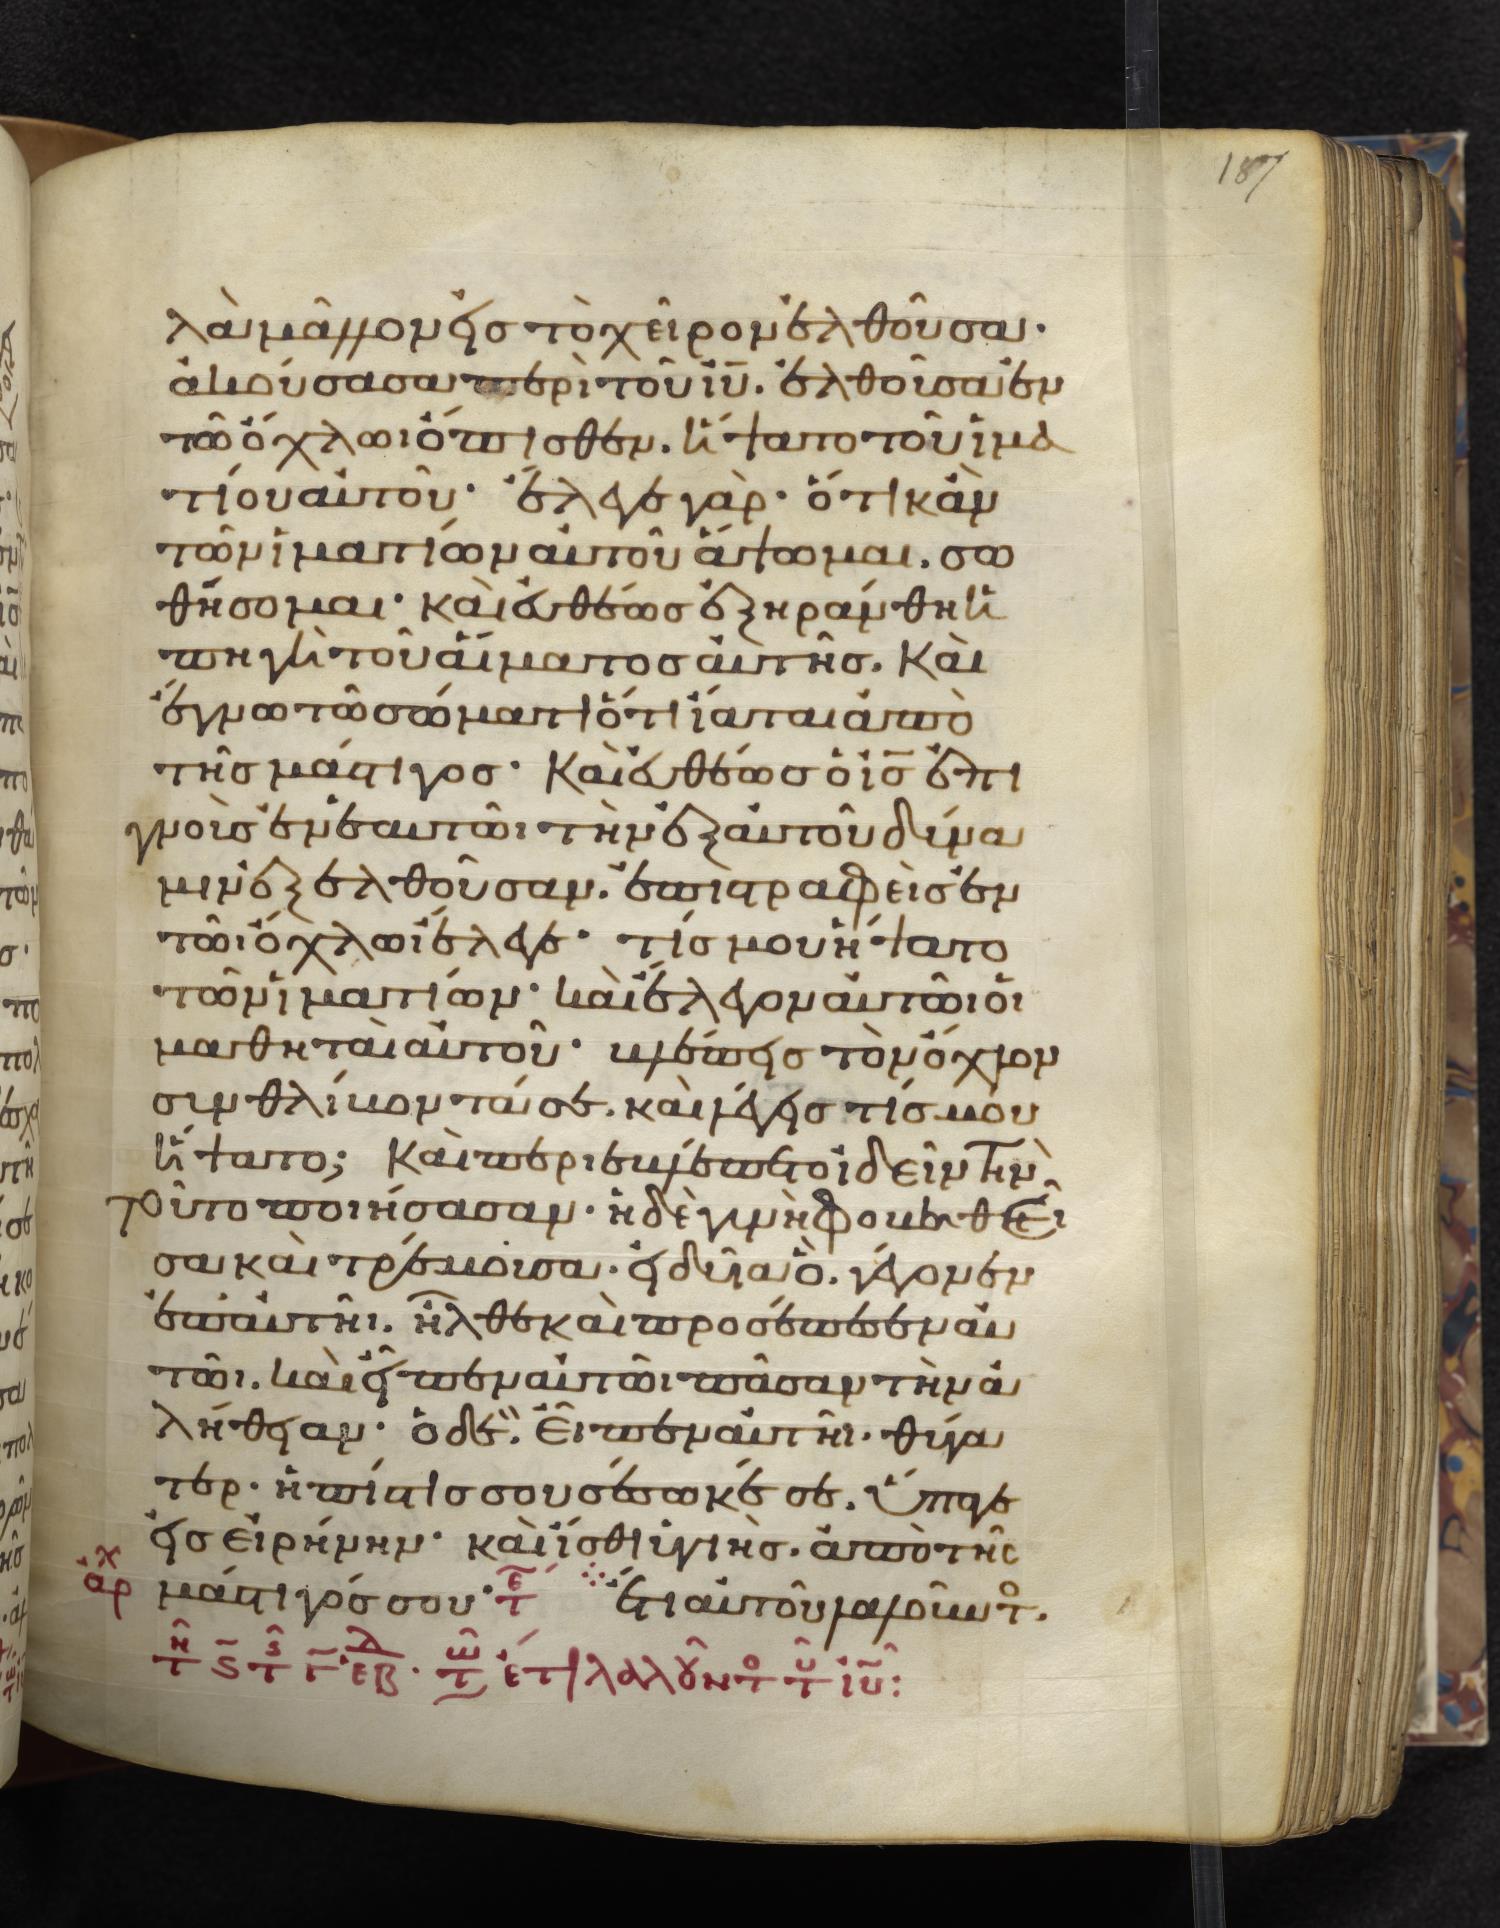 187
λὰ μᾶλλον εἰς τὸ χεῖρον ἐλθοῦσα·
ἀκούσασα περὶ τοῦ ἰῦ. ἐλθοῦσα ἐν
τῶ ὄχλωι ὄπισθεν. ἥψατο τοῦ ἱμα
τίου αὐτοῦ· ἔλεγε γὰρ· ὅτι κἂν
τῶν ἱματίων αὐτοῦ ἅψωμαι. σω
θήσομαι· καὶ εὐθέως ἐξηράνθη ἡ
πηγὴ τοῦ αἵματος αὐτῆς. Καὶ
ἔγνω τῶ σώματι ὅτι ἴαται ἀπὸ
τῆς μάστιγος· Καὶ εὐθέως ὁ ἰς ἐπι
γνοὺς ἐν ἑαυτῶι τὴν ἐξ αὐτοῦ δύνα
μιν ἐξελθοῦσαν. ἐπιστραφεὶς ἐν
τῶι ὄχλωι ἔλεγε· τίς μου ἥψατο
τῶν ἱματίων· καὶ ἔλεγον αὐτῶι οἱ
μαθηταὶ αὐτοῦ· βλέπεις τὸν ὄχλον
συνθλίβοντά σε. καὶ λέγεις τίς μου
ἥψατο; Καὶ περιεβλέπετο ἰδεῖν τὴν
τοῦτο ποιήσασαν· ἡ δὲ γυνὴ φοβηθεῖ
σα καὶ τρέμουσα· εἰδυῖα ὃ. γέγονεν
ἐπ' αὐτῆι. ἦλθε καὶ προσέπεσεν αὐ
τῶι. καὶ εἶπεν αὐτῶι πᾶσαν τὴν ἀ
λήθειαν· ὁ δὲ. εἶπεν αὐτῆι· θύγα
τερ· ἡ πίστις σου σέσωκέ σε. ὕπαγε
εἰς εἰρήνην· καὶ ἴσθι ὑγιὴς. ἀπὸ τῆς
ἀρχ μάστιγός σου· τε Ἔτι αὐτοῦ λαλοῦντο.
τῆ ς̄ τς γ̄ ἑβδ. τῶ ἔτι λαλοῦντο τοῦ ἰῦ: